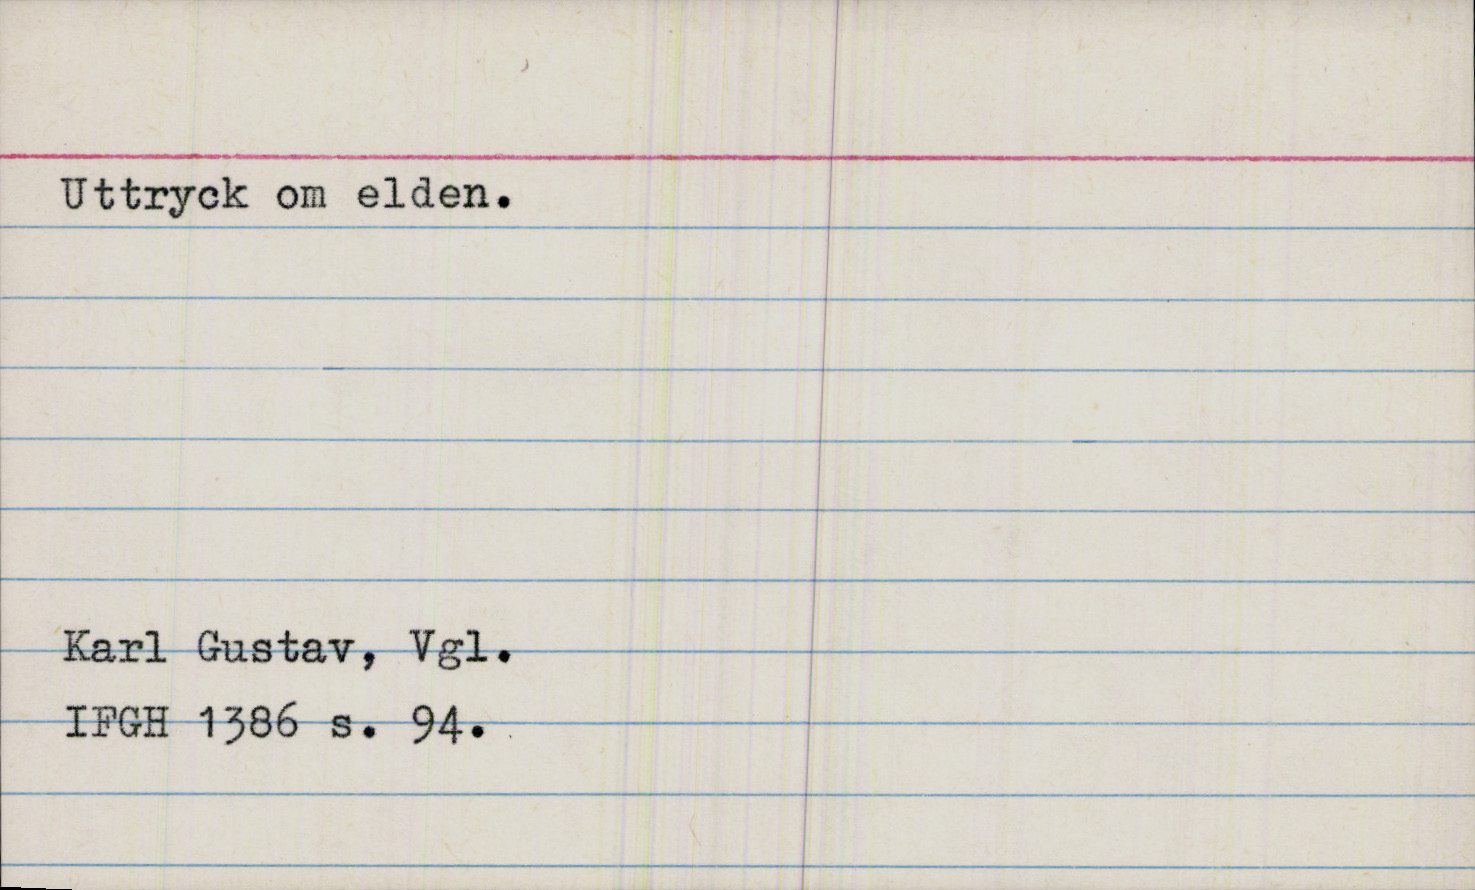 Uttryck om elden.
Karl Gustav, Vgl.
IFGH 1386 s. 94.